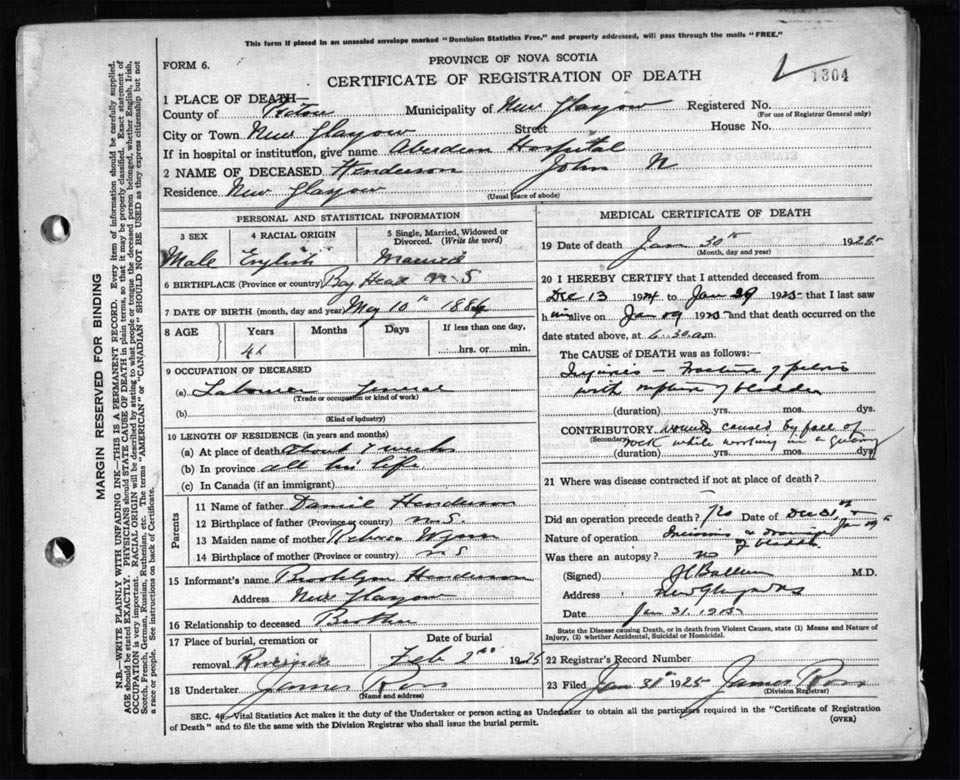 This form if placed in an unsealed envelope marked "Dominion Statistics Free," and properly addressed, will pass through the mails "FREE."
FORM 6.
PROVINCE OF NOVA SCOTIA
CERTIFICATE OF REGISTRATION OF DEATH
1304
1 PLACE OF DEATH—
County of Pictou Municipality of New Glasgow Registered No.
(For use of Registrar General only)
City or Town New Glasgow Street House No.
If in hospital or institution, give name Aberdeen Hospital
2 NAME OF DECEASED Henderson John N
Residence New Glasgow
(Usual place of abode)
PERSONAL AND STATISTICAL INFORMATION
3 SEX 4 RACIAL ORIGIN 5 Single, Married, Widowed or Divorced. (Write the word)
Male English Married
6 BIRTHPLACE (Province or country) Bay Head N.S
7 DATE OF BIRTH (month, day and year) May 10th 1884
8 AGE Years Months Days If less than one day,
41 hrs. or min.
9 OCCUPATION OF DECEASED
(a) Labourer General
(Trade or occupation or kind of work)
(b)
(Kind of industry)
10 LENGTH OF RESIDENCE (in years and months)
(a) At place of death about 7 weeks
(b) In province all his life
(c) In Canada (if an immigrant)
Parents
11 Name of father Daniel Henderson
12 Birthplace of father (Province or country) N.S.
13 Maiden name of mother Rebecca
14 Birthplace of mother (Province or country) N S
15 Informant's name Henderson
Address New Glasgow
16 Relationship to deceased Brother
17 Place of burial, cremation or removal Date of burial
Riverside Feb 2nd 1925
18 Undertaker James Ross
(Name and address)
MEDICAL CERTIFICATE OF DEATH
19 Date of death Jan 30th 1925
(Month, day and year)
20 I HEREBY CERTIFY that I attended deceased from
Dec 13 1924 to Jan 29 1925 that I last saw
him alive on Jan 29 1925 and that death occurred on the
date stated above, at 6.30 a.m.
The CAUSE OF DEATH was as follows:—
Injuries — Fracture of pelvis
with rupture of bladder
(duration) yrs. mos. dys.
CONTRIBUTORY wounds caused by fall of
(Secondary) rock while working in a quarry
(duration) yrs. mos. dys.
21 Where was disease contracted if not at place of death?
Did an operation precede death? Yes Date of Dec 31st
Jan 19th
Nature of operation Incision & Drainage
of bladder
Was there an autopsy? no
(Signed) M.D.
Address New Glasgow NS
Date Jan 31. 1925
State the Disease causing Death, or in death from Violent Causes, state (1) Means and Nature of Injury, (2) whether Accidental, Suicidal or Homicidal.
22 Registrar's Record Number
23 Filed Jan 31st 1925 James Ross
(Division Registrar)
SEC. Vital Statistics Act makes it the duty of the Undertaker or person acting as Undertaker to obtain all the particulars required in the "Certificate of Registration
of Death" and to file the same with the Division Registrar who shall issue the burial permit.
(OVER)
MARGIN RESERVED FOR BINDING
N.B.—WRITE PLAINLY WITH UNFADING INK—THIS IS A PERMANENT RECORD. Every item of information should be carefully supplied.
AGE should be stated EXACTLY. PHYSICIANS should STATE CAUSE OF DEATH in plain terms, so that it may be properly classified. Exact statement of
OCCUPATION is very important. RACIAL ORIGIN will be described by stating to what people or tongue the deceased person belonged, whether English, Irish,
Scotch, French, German, Russian, Ruthenian, etc. The terms "AMERICAN" or "CANADIAN" SHOULD NOT BE USED as they express citizenship but not
a race or people. See instructions on back of Certificate.